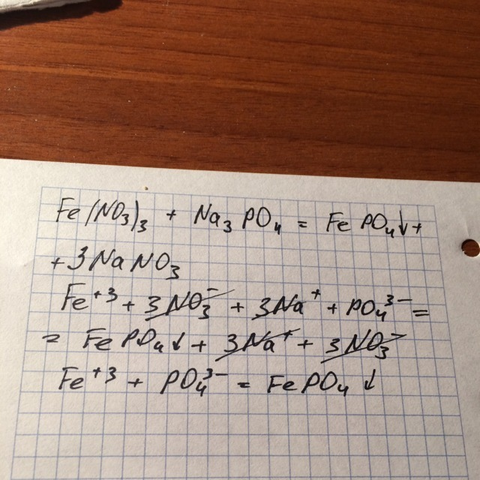 Fe(NO₃)₃ + Na₃PO₄ = FePO₄↓ +
+ 3NaNO₃
Fe⁺³ + 3NO₃⁻ + 3Na⁺ + PO₄³⁻ =
= FePO₄↓ + 3Na⁺ + 3NO₃⁻
Fe⁺³ + PO₄³⁻ = FePO₄↓